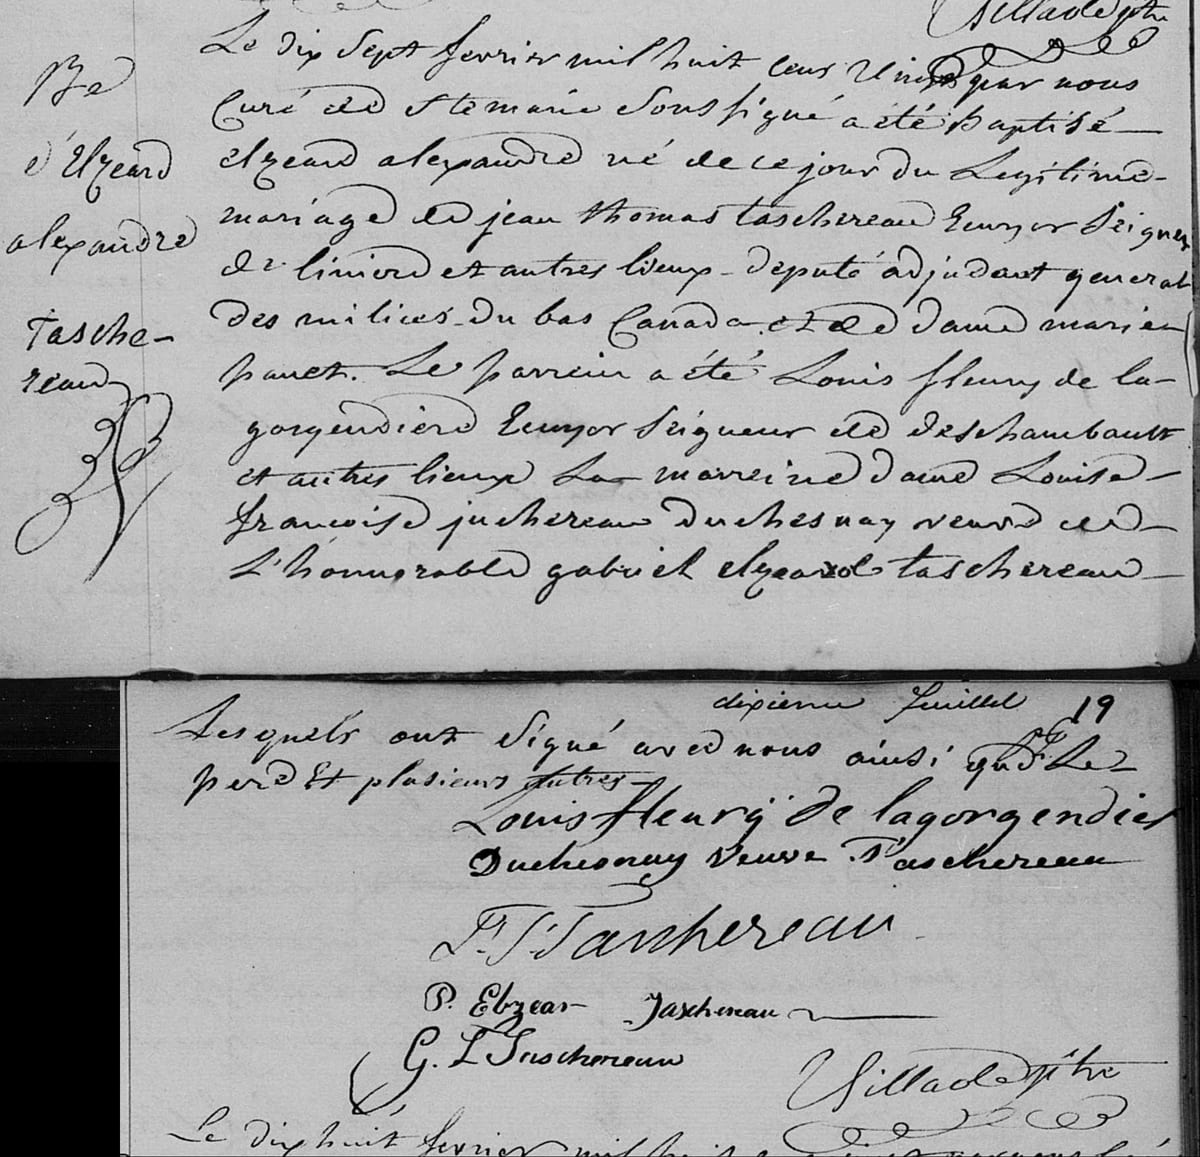 Villade ptre
Le dix Sept fevrier mil huit cens vingt par nous
Curé de Ste marie Soussigné a été Baptisé
Be
d'Elzeard
alexandre
Tasche-
reau
elzeard alexandre né de ce jour du Legitime
mariage de jean thomas taschereau Ecuyer Seigneur
de liniere et autres lieux deputé adjudant general
des milices du bas Canada et de dame marie
panet. Le parrein a été Louis fleury de la
gorgendiere Ecuyer Seigneur de deschambault
et autres lieux La marreine dame Louise
francoise juchereau duchesnay veuve de
L'honnorable gabriel elzeard taschereau
dixieme feuillet 19
Lesquels ont Signé avec nous ainsi que Le
pere Et plusieurs autres
Louis fleury de lagorgendier
Duchesnay veuve Taschereau
Taschereau
P. Elzear Taschereau
G. L Taschereau
Villade ptre
Le dix huit fevrier mil